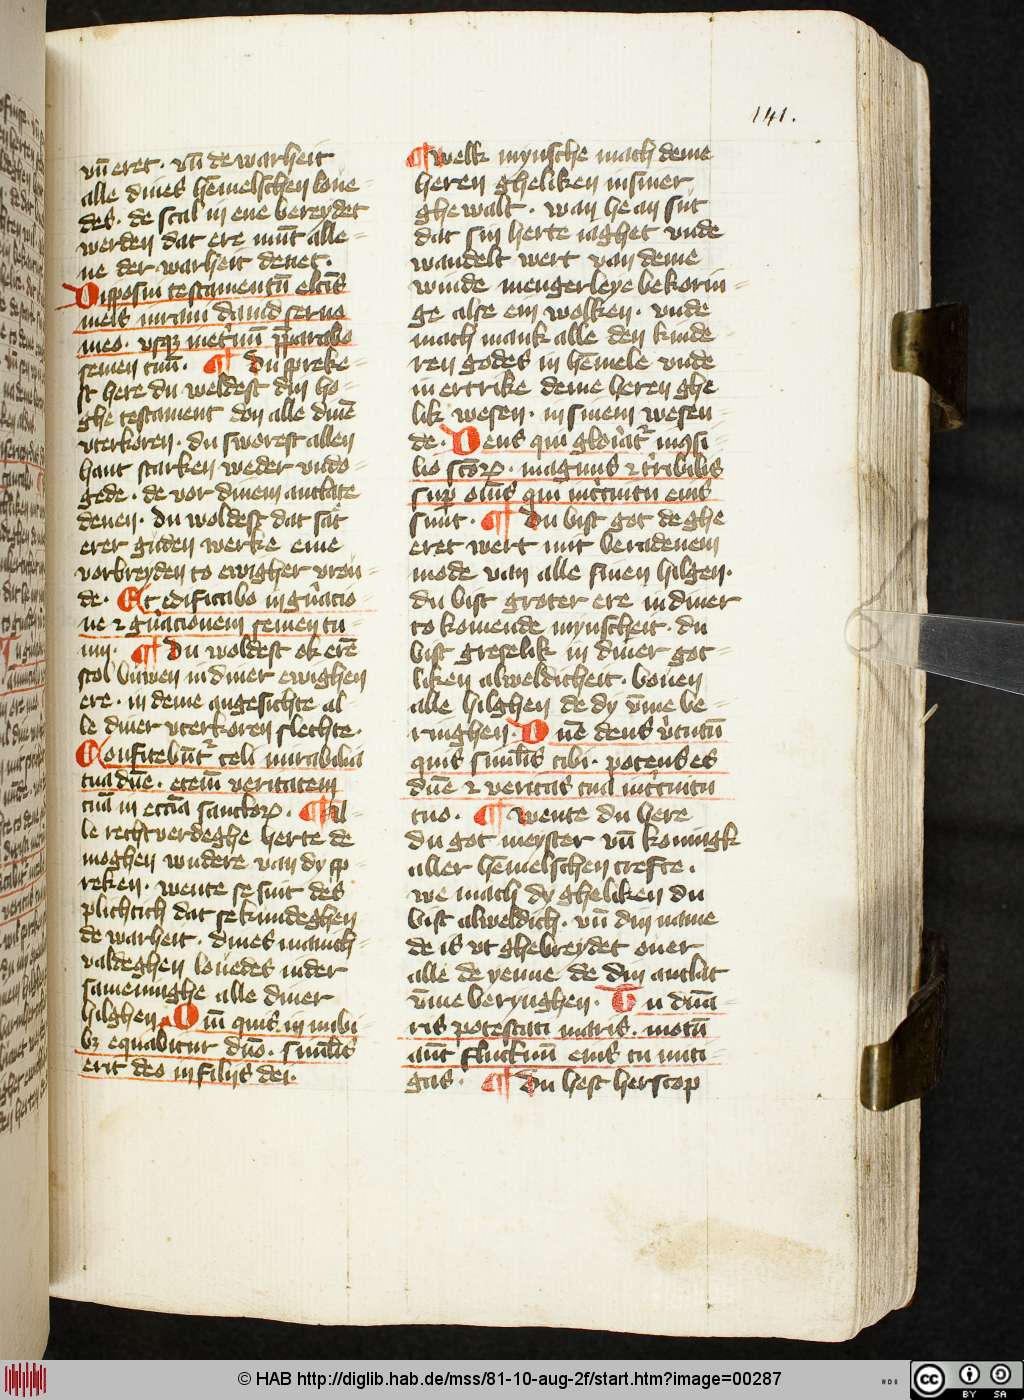 141.
vn̄ eret. vn̄ de warheit
alle dines hēmelschen loue-
des. de scal in ene bereydet
werden dat ere mūt alle-
ne der warheit denet.
Disposui testamentū elc̄is
meis iuraui dauid seruo
meo. vsqȝ
semen tuū. ¶ Du spreke-
st here du weldest din ho-
ghe testament don alle dinē
vterkoren. du sworest allen
hant starken weder vndo-
gede. de vor dinem antlate
denen. du woldest dat sāt
erer guden werke eme
vorbreyden to ewigher vrou-
de. Et edificabo in gn̄acio-
ne ⁊ gn̄acionem semen tu-
um. ¶ Du woldest ok erē
stol buwen in diner ewighen
ere. in deme angesichte al-
le diner vterkoren slechte.
Confitebūt᷑ celi mirabilia
tua dn̄e. eteīm veritatem
tuā in ecc̄ia sanctoꝝ. ¶ Al-
le rechtverdeghe herte de
moghen wudere van dy sp-
reken. wente se sint des
plichtich dat se kundeghen
de warheit. dines manich-
valdeghen louedes in der
sameninghe alle diner
hilghen. Qm̄ quis in nubi-
bȝ equabitur dn̄o. similis
erit deo in filijs dei.
¶ welk mynsche mach deme
heren gheliken in siner
ghewalt. wan he an sut
dat sin herte iaghet vnde
wandelt wert van deme
winde mengerleye bekorin-
ge alse ein wolken. vnde
mach mank alle den kinde
ren godes in hēmele vnde
in ertrike deme heren ghe
lik wesen. in sinem wesen-
de. Deus qui glorīat᷑ in cōsi-
lio sc̄oꝝ. magnus ⁊ t̄ribilis
sup̄ om̄s qui in circuitu eius
sunt. ¶ Du bist got de ghe
eret wert mit beradenem
mode van alle sinen hilgen.
du bist groter ere in diner
to komende mynscheit. du
bist greselik in diner got-
liken alweldicheit. bouen
alle hilghen de dy vmme be-
ringhen. Dn̄e deus v̄tutū
quis similis tibi. potens es
dn̄e ⁊ veritas tua in circuitu
tuo. ¶ Wente du here
du got meyster vn̄ koningk
aller hēmelschen crefte.
we mach dy gheliken du
bist alweldich. vn̄ din name
de is vt ghebreydet ouer
alle de yenne de din antlat
v̄me berynghen. Tu dn̄a-
ris potestati maris. motū
aūt fluctuū eius tu miti-
gas. ¶ Du hest herscop
© HAB http://diglib.hab.de/mss/81-10-aug-2f/start.htm?image=00287
HAB
CC
BY SA